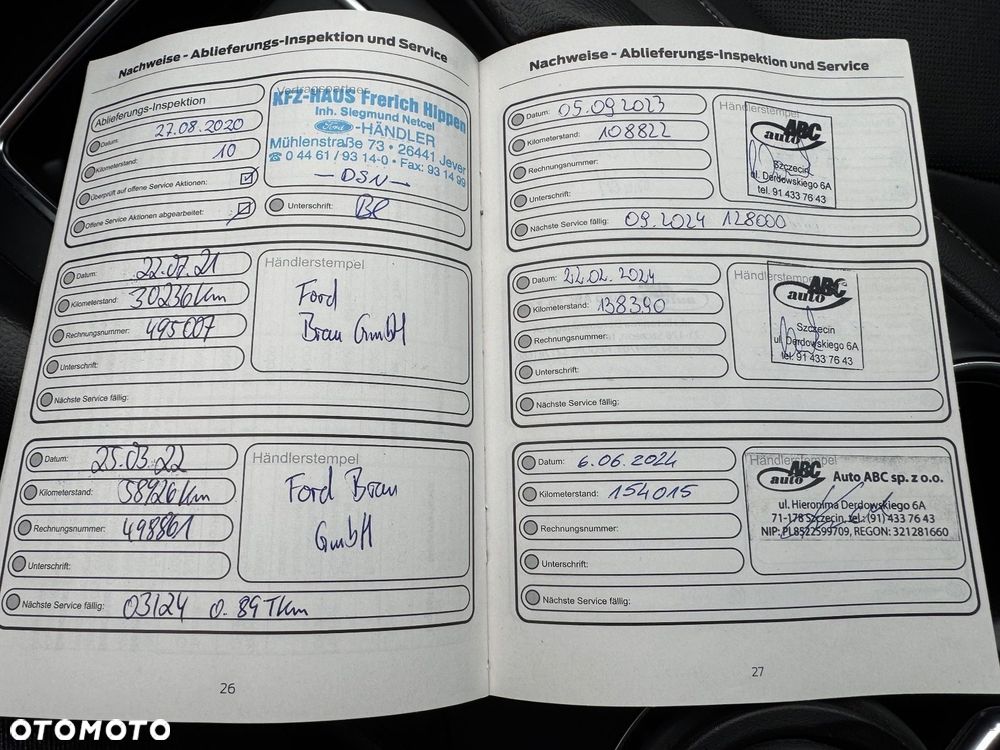 Nachweise - Ablieferungs-Inspektion und Service
Ablieferungs-Inspektion
Datum: 27.08.2020
Kilometerstand: 10
Überprüft auf offene Service Aktionen:
Offene Service Aktionen abgearbeitet:
Vertragspartner
KFZ-HAUS Frerich Hippen
Inh. Siegmund Netcel
Ford -HÄNDLER
Mühlenstraße 73 • 26441 Jever
☎ 0 44 61 / 93 14-0 • Fax: 93 14 99
- DSN -
Unterschrift:
Datum: 22.07.21
Kilometerstand: 30236km
Rechnungsnummer: 495007
Unterschrift:
Nächste Service fällig:
Händlerstempel
Ford
Brau GmbH
Datum: 25.03.22
Kilometerstand: 58926km
Rechnungsnummer: 498861
Unterschrift:
Nächste Service fällig: 03/24 o. 89Tkm
Händlerstempel
Ford Brau
GmbH
26
Nachweise - Ablieferungs-Inspektion und Service
Datum: 05.09.2023
Kilometerstand: 108822
Rechnungsnummer:
Unterschrift:
Nächste Service fällig: 09.2024 128000
Händlerstempel
auto ABC
Szczecin
ul. Derdowskiego 6A
tel. 91 433 76 43
Datum: 22.02.2024
Kilometerstand: 138390
Rechnungsnummer:
Unterschrift:
Nächste Service fällig:
Händlerstempel
auto ABC
Szczecin
ul. Derdowskiego 6A
tel. 91 433 76 43
Datum: 6.06.2024
Kilometerstand: 154015
Rechnungsnummer:
Unterschrift:
Nächste Service fällig:
Händlerstempel
auto ABC Auto ABC sp. z o.o.
ul. Hieronima Derdowskiego 6A
71-178 Szczecin, tel.: (91) 433 76 43
NIP: PL8522599709, REGON: 321281660
27
OTOMOTO